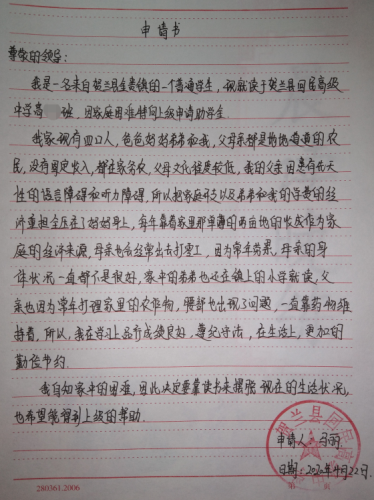 申请书
尊敬的领导:
我是一名来自贺兰县金贵镇的一个普通学生,现就读于贺兰县回民高级
中学高 班.因家庭困难特向上级申请助学金.
我家现有四口人,爸爸妈妈弟弟和我,父母亲都是地地道道的农
民,没有固定收入,都在家务农,父母文化程度较低,我的父亲因患有先天
性的语言障碍和听力障碍,所以把家庭开支以及弟弟和我的学费的经
济重担全压在了妈妈身上,每年靠着家里那单薄的两亩地的收成作为家
庭的经济来源,母亲也会经常出去打零工,因为常年劳累,母亲的身
体状况一直都不是很好,家中的弟弟也还在镇上的小学就读,父
亲也因为常年打理家里的农作物,腰部也出现了问题,一直靠药物维
持着,所以,我在学习上品行成绩良好,遵纪守法,在生活上,更加的
勤俭节约.
我自知家中的困难,因此决定要靠读书来摆脱现在的生活状况,
也希望能得到上级的帮助.
申请人:马丽
日期:2020年4月22日.
280361.2006
第 页